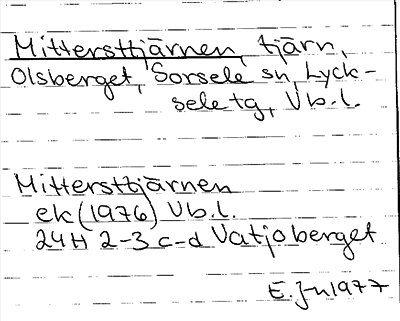 Mittersttjärnen, tjärn,
Olsberget, Sorsele sn, Lyck-
sele tg, Vb.l.
Mittersttjärnen
ek (1976) Vb.l.
24H 2-3 c-d Vatjoberget
E. Jn 1977